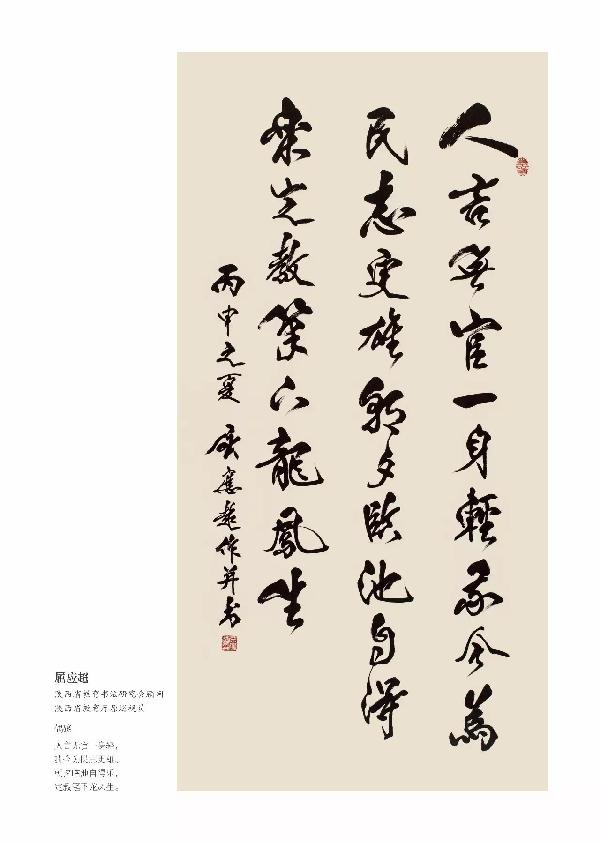 人言無官一身輕我今為
民志更雄朝夕臨池自得
樂定教筆下龍鳳生
丙申之夏 屈應超作并書
屈应超
陕西省教育书法研究会顾问
陕西省教育厅原巡视员
人言无官一身轻，
我今为民志更雄。
朝夕临池自得乐，
定教笔下龙凤生。